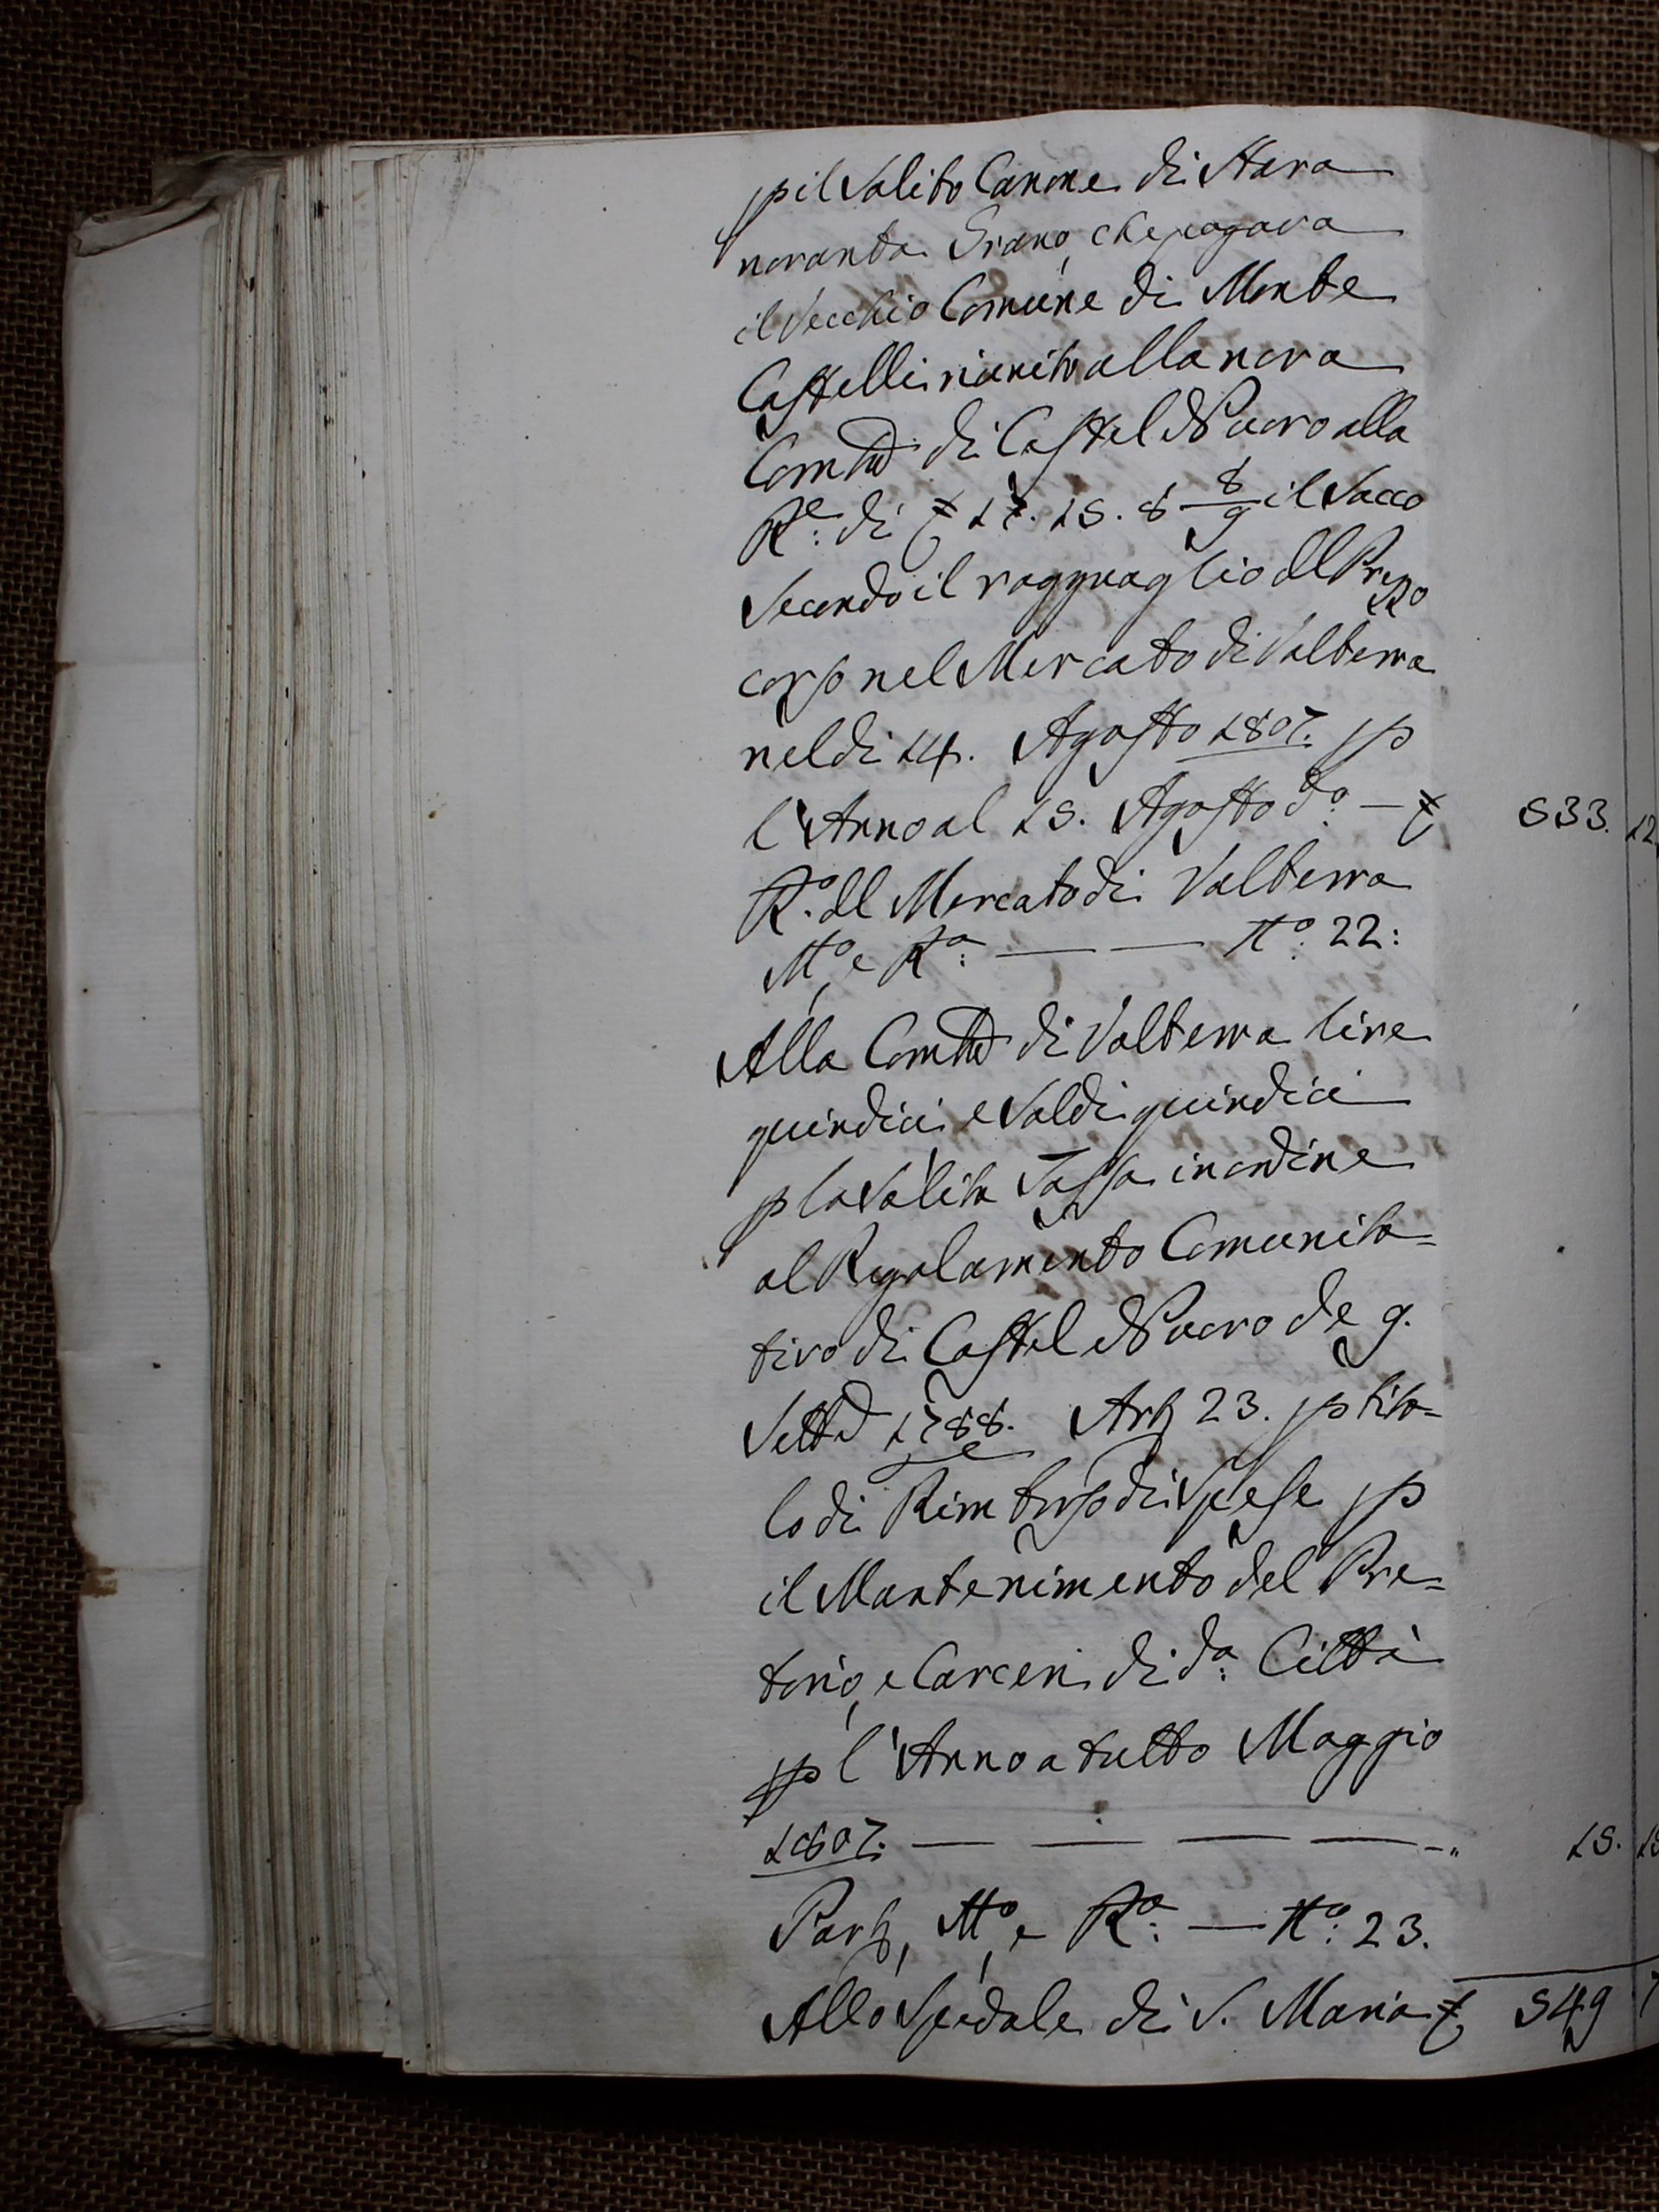 p il Solito Canone di Stara
novanta Grano, che pagava
il Vecchio Comune di Monte
Castelli riunito alla nova
Comtà di Castel Nuovo alla
Rе: di £ 17. 15. 8 8/9 il Sacco
Secondo il ragguaglio del Prezzo
corso nel Mercato di Volterra
nel di 14. Agosto 1807. p
l'Anno al 15. Agosto do: — £ 533. 12
Ro. del Mercato di Volterra
Mo, e Ra: — — No: 22:
Alla Comtà di Volterra lire
quindici e Soldi quindici
p la Solita Tassa in ordine
al Regolamento Comunita=
tivo di Castel Nuovo de 9.
Sette 1788. Art. 23. p tito=
lo di Rimborso di Spese p
il Mantenimento del Pre=
torio, e Carceri di da: Città
p l'Anno a tutto Maggio
1807. — — — — -" 15. 15
Part, Mo, e Ra: — No: 23.
Allo Spedale di S. Maria £ 549 7